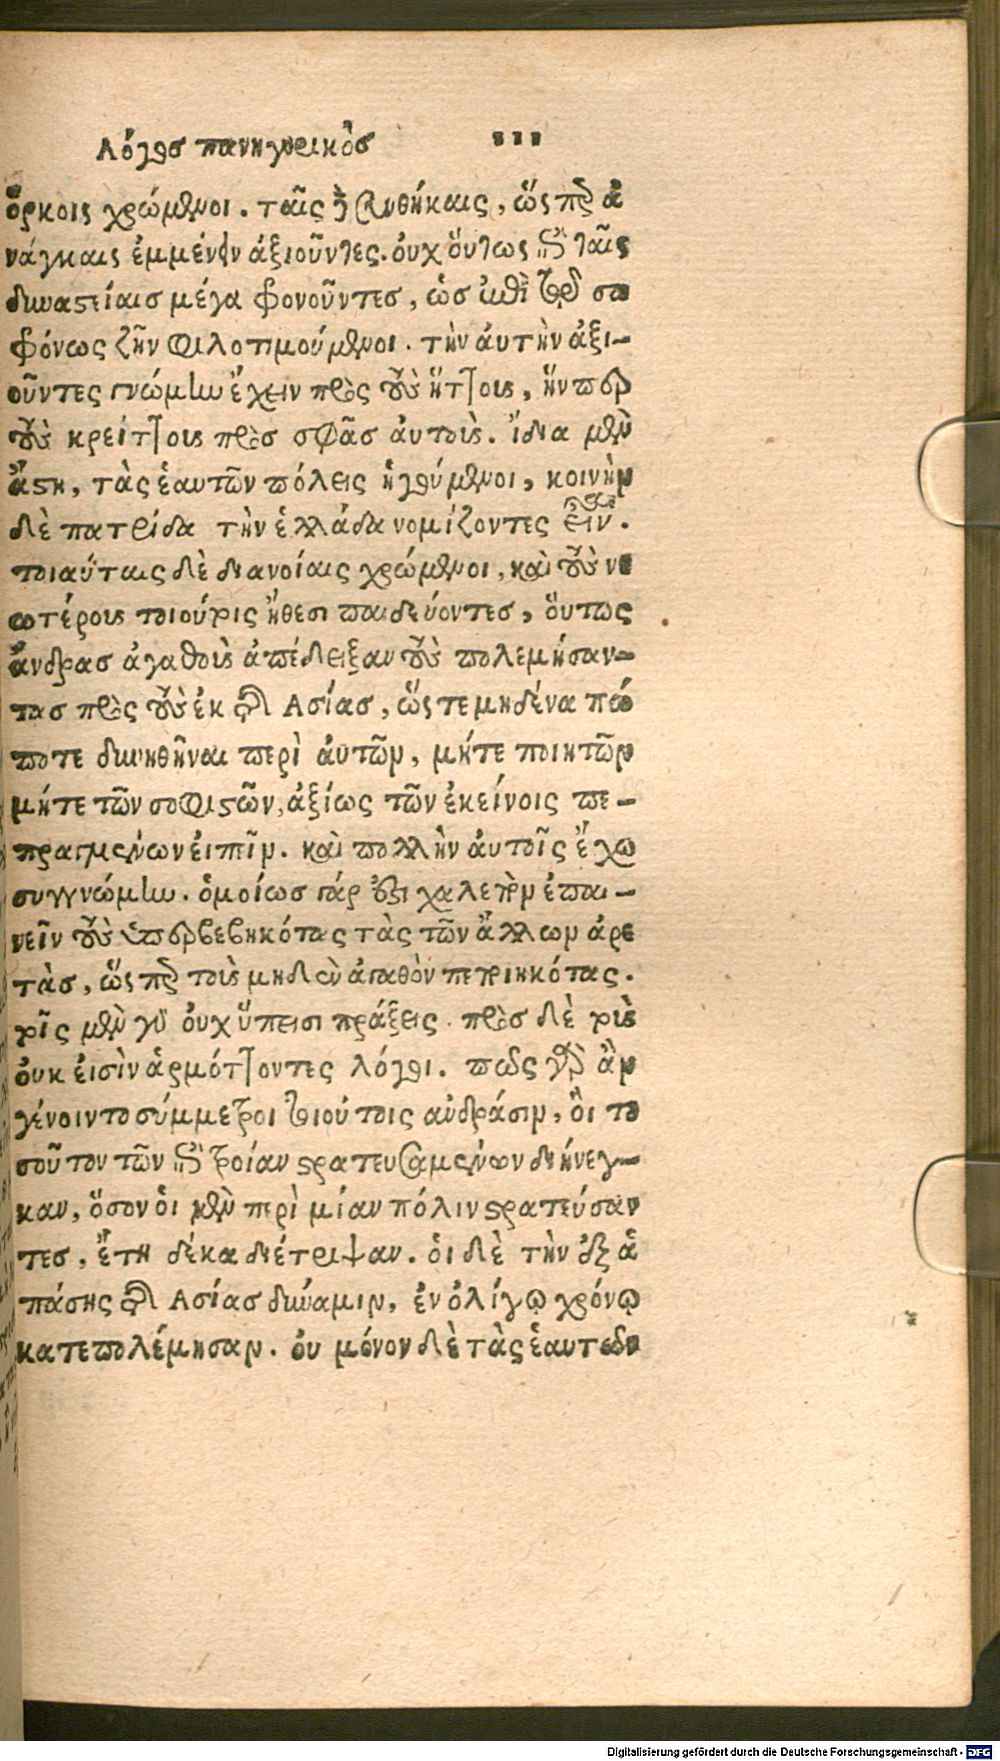 Λόγος πανηγυρικὸς
ὅρκοις χρώμενοι. ταῖς δὲ συνθήκαις, ὥσπερ ἀ
νάγκαις ἐμμένειν ἀξιοῦντες. οὐχ οὕτως ἐπὶ ταῖς
δυναστείαισ μέγα φρονοῦντεσ, ὡσ ἐπὶ τῷ σω
φρόνως ζῆν φιλοτιμούμενοι. τὴν ἀυτὴν ἀξι-
οῦντες γνώμην ἔχειν πρὸς τοὺς ἥττους, ἥνπερ
τοὺς κρείττους πρὸσ σφᾶσ ἀυτοὺς. ἴδια μὲν
ἄστη, τὰς ἑαυτῶν πόλεις ἡγούμενοι, κοινὴν
δὲ πατρίδα τὴν ἑλλάδα νομίζοντες εἶναι.
τοιαύταις δὲ διανοίαις χρώμενοι, καὶ τοὺς νε
ωτέρους τοιούτοις ἤθεσι παιδεύοντεσ, ὅυτως
ἄνδρασ ἀγαθοὺς ἀπέδειξαν τοὺς πολεμήσαν-
τασ πρὸς τοὺς ἐκ τῆς Ασίας, ὥστε μηδένα πώ
ποτε δυνηθῆναι περὶ ἀυτῶν, μήτε ποιητῶν
μήτε τῶν σοφιστῶν, ἀξίως τῶν ἐκείνοις πε-
πραγμένων ἐιπεῖν. καὶ πολλὴν ἀυτοῖς ἔχω
συγγνώμην. ὁμοίωσ γάρ ἐστι χαλεπὸν ἐπαι-
νεῖν τοὺς ὑπερβεβηκότας τὰς τῶν ἄλλων ἀρε
τὰσ, ὥσπερ τοὺς μηδὲν ἀγαθὸν πεποιηκότας.
τοῖς μὲν γὰρ ὀυχ ὕπεισι πράξεις. πρὸσ δὲ τοὺς
ὀυκ ἐισὶν ἁρμόττοντες λόγοι. πῶς γὰρ ἂν
γένοιντο σύμμετροι τοιούτοις ἀνδράσιν, ὃι το
σοῦτον τῶν ἐπὶ τροίαν στρατευσαμένων διήνεγ-
καν, ὅσον ὁι μὲν περὶ μίαν πόλιν στρατεύσαν
τεσ, ἔτη δέκα διέτριψαν. ὁι δὲ τὴν ἐξ ἁ
πάσης τῆς Ασίας δύναμιν, ἐν ὀλίγῳ χρόνῳ
κατεπολέμησαν. ὀυ μόνον δὲ τὰς ἑαυτῶν
Digitalisierung gefördert durch die Deutsche Forschungsgemeinschaft - DFG